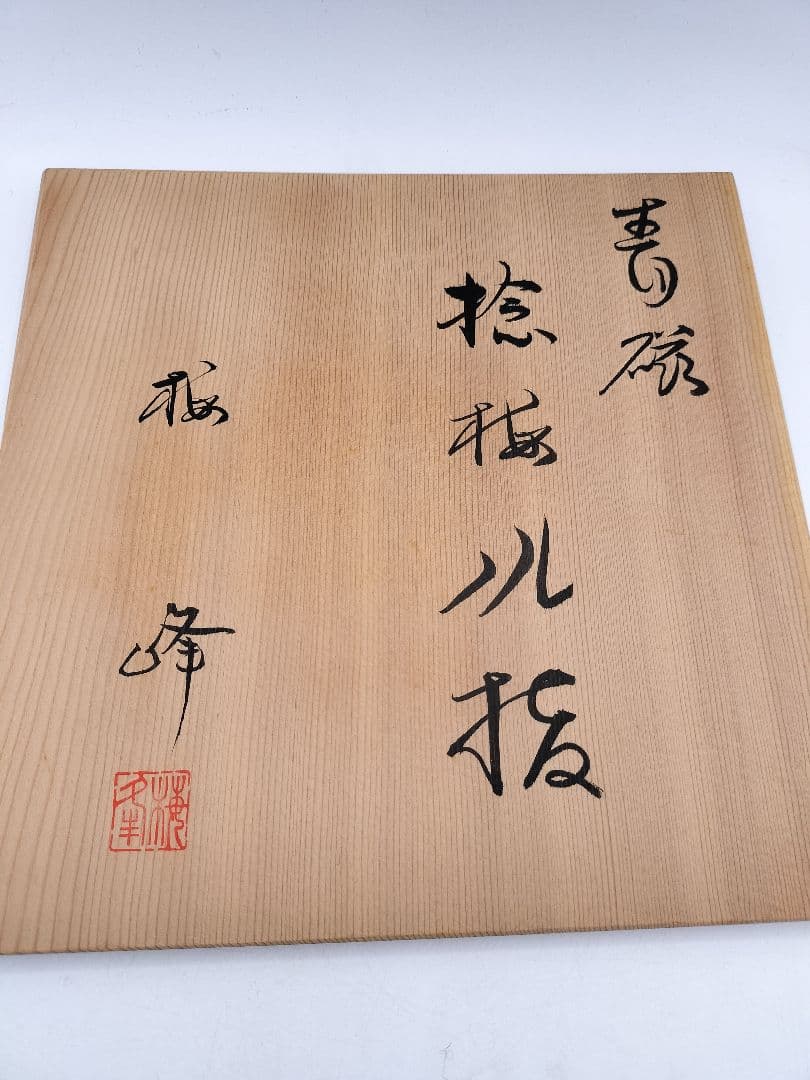 青磁
捻梅小指
梅峰
梅峯